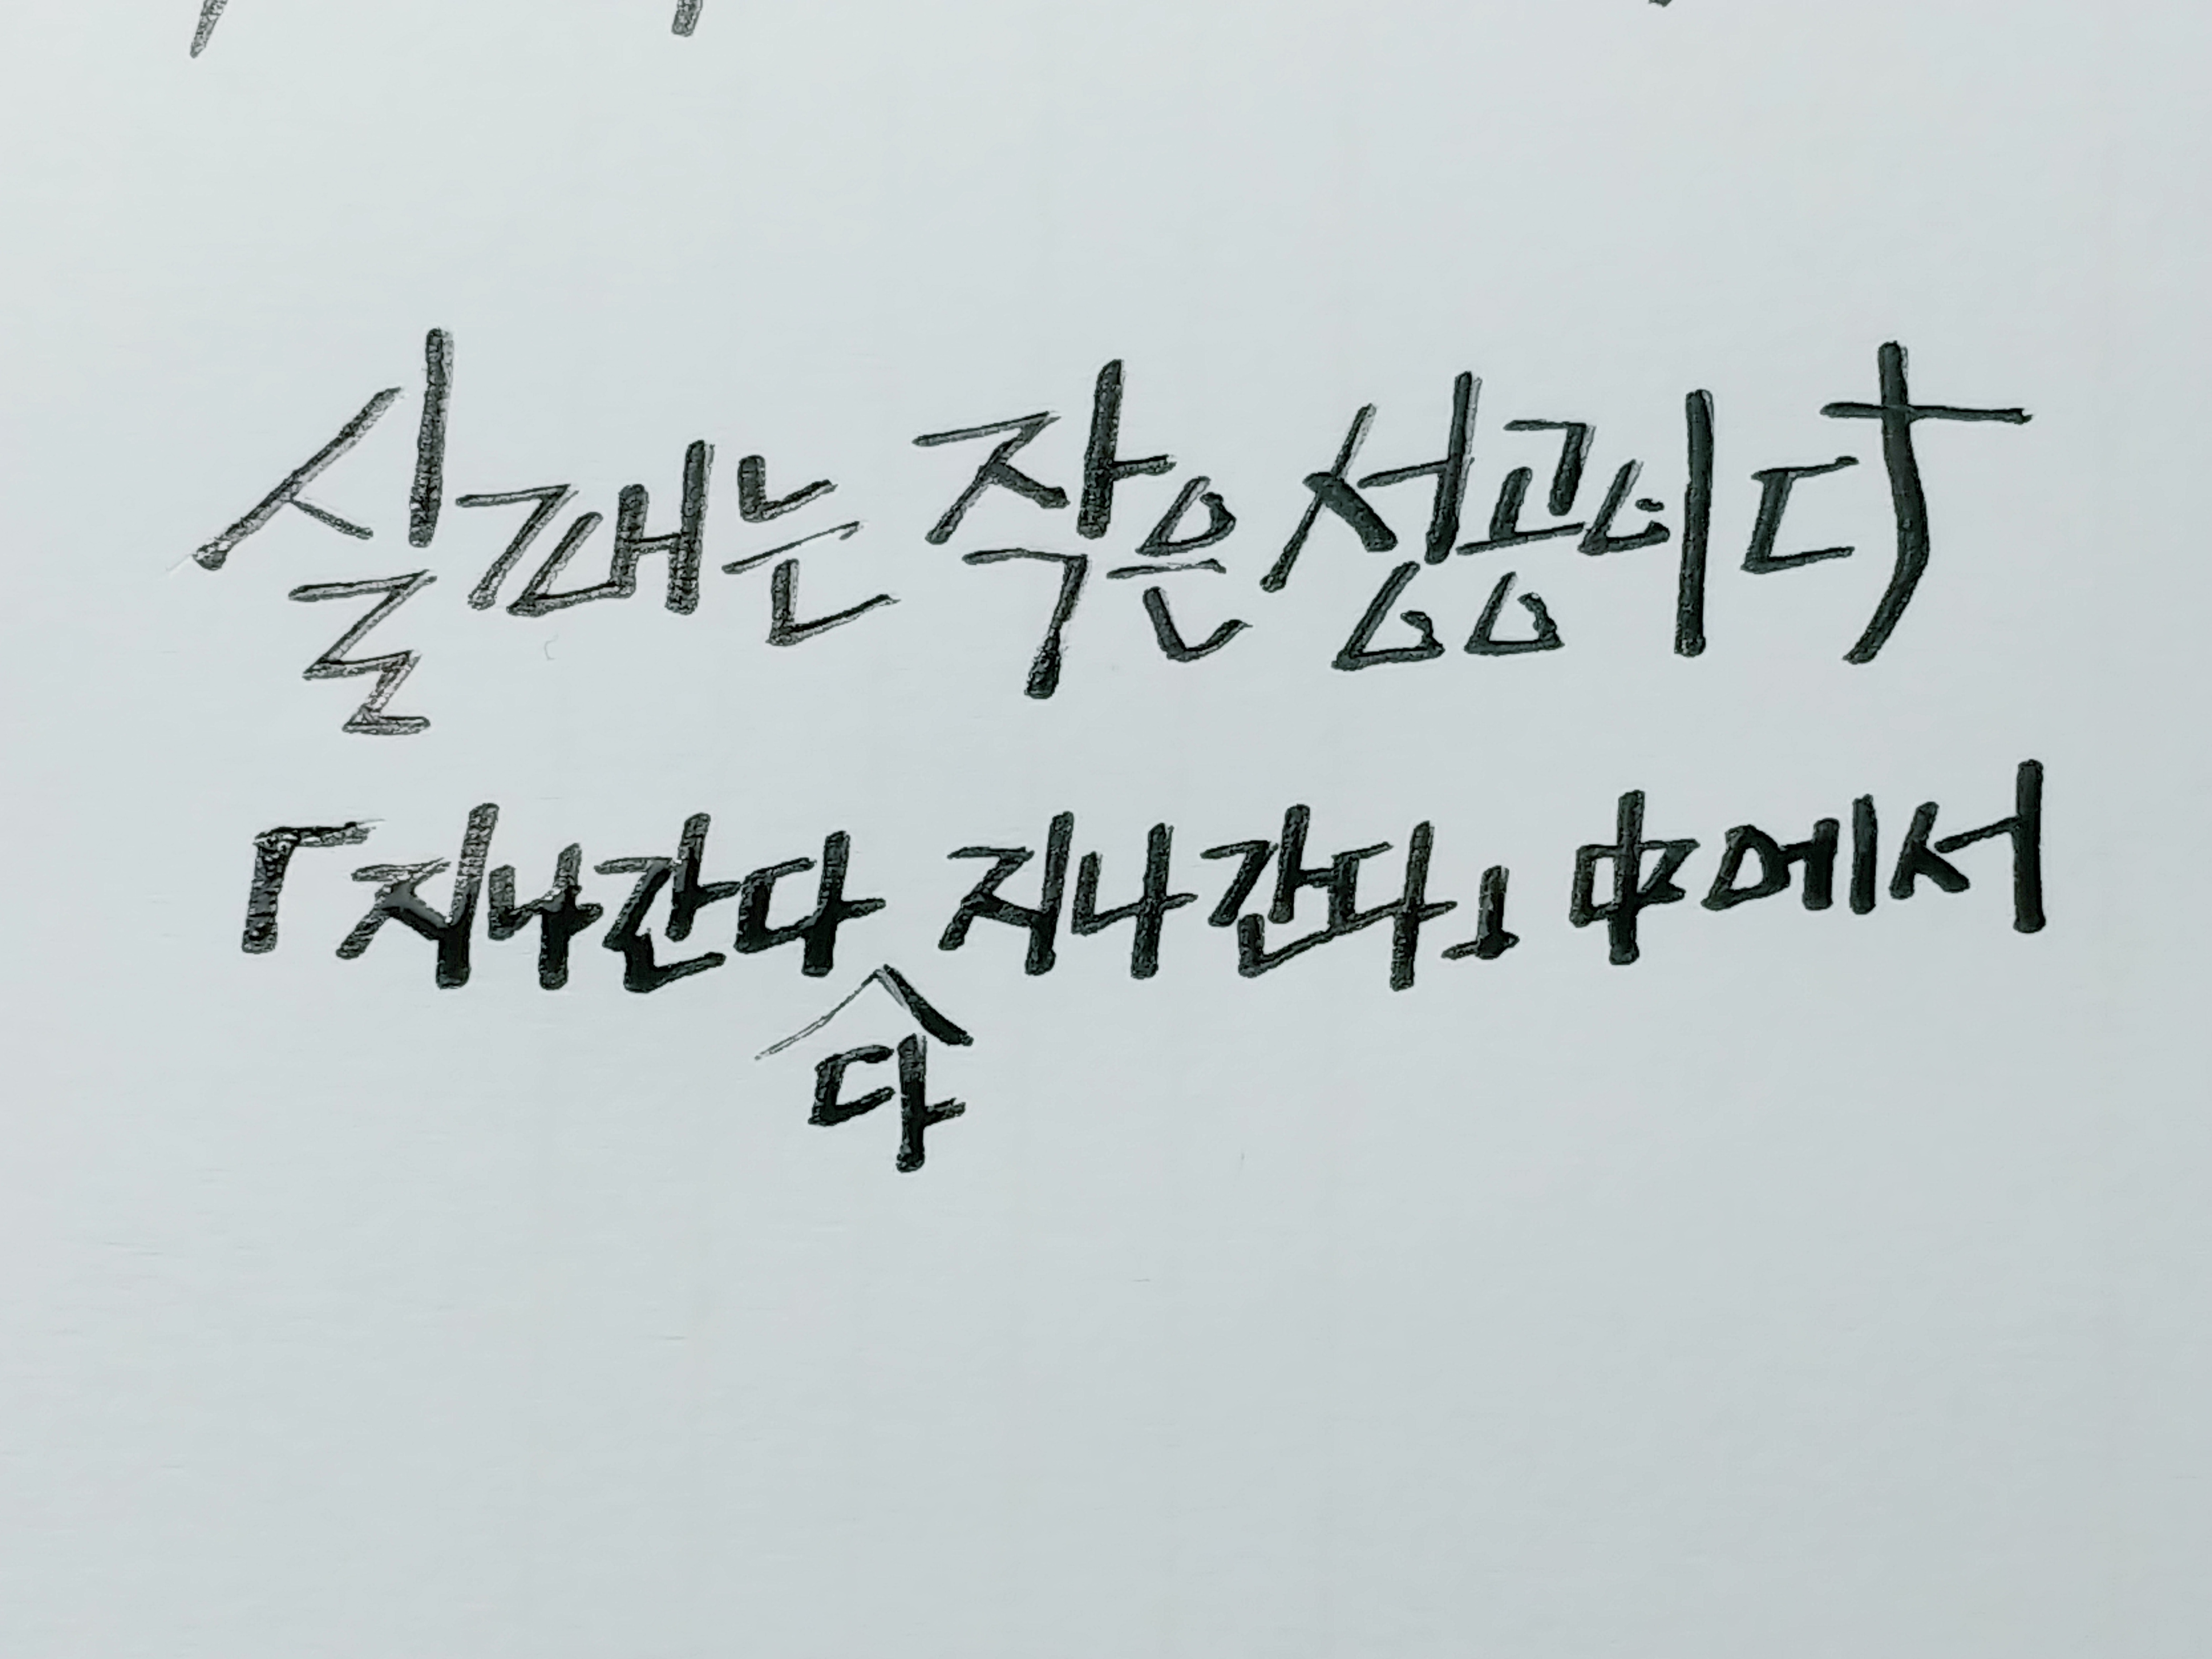 실패는 작은 성공이다
「지나간다 지나간다」 中에서
다